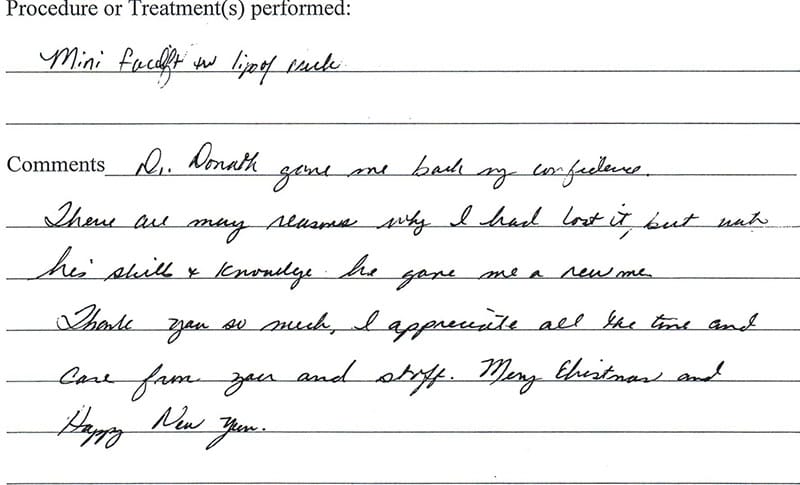 Procedure or Treatment(s) performed:
Mini facelift w lipo of neck
Comments Dr. Donath gave me back my confidence.
There are many reasons why I had lost it, but with
his skill & knowledge he gave me a new me
Thank you so much, I appreciate all the time and
care from you and staff. Merry Christmas and
Happy New Year.